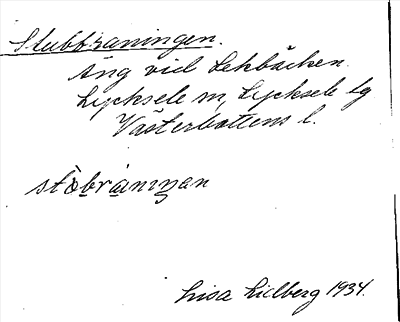 Stubbraningen.
Äng vid Lekbäcken.
Lycksele m, Lycksele lg
Västerbottens l.
stòbràningan
Lisa Lidberg 1934.